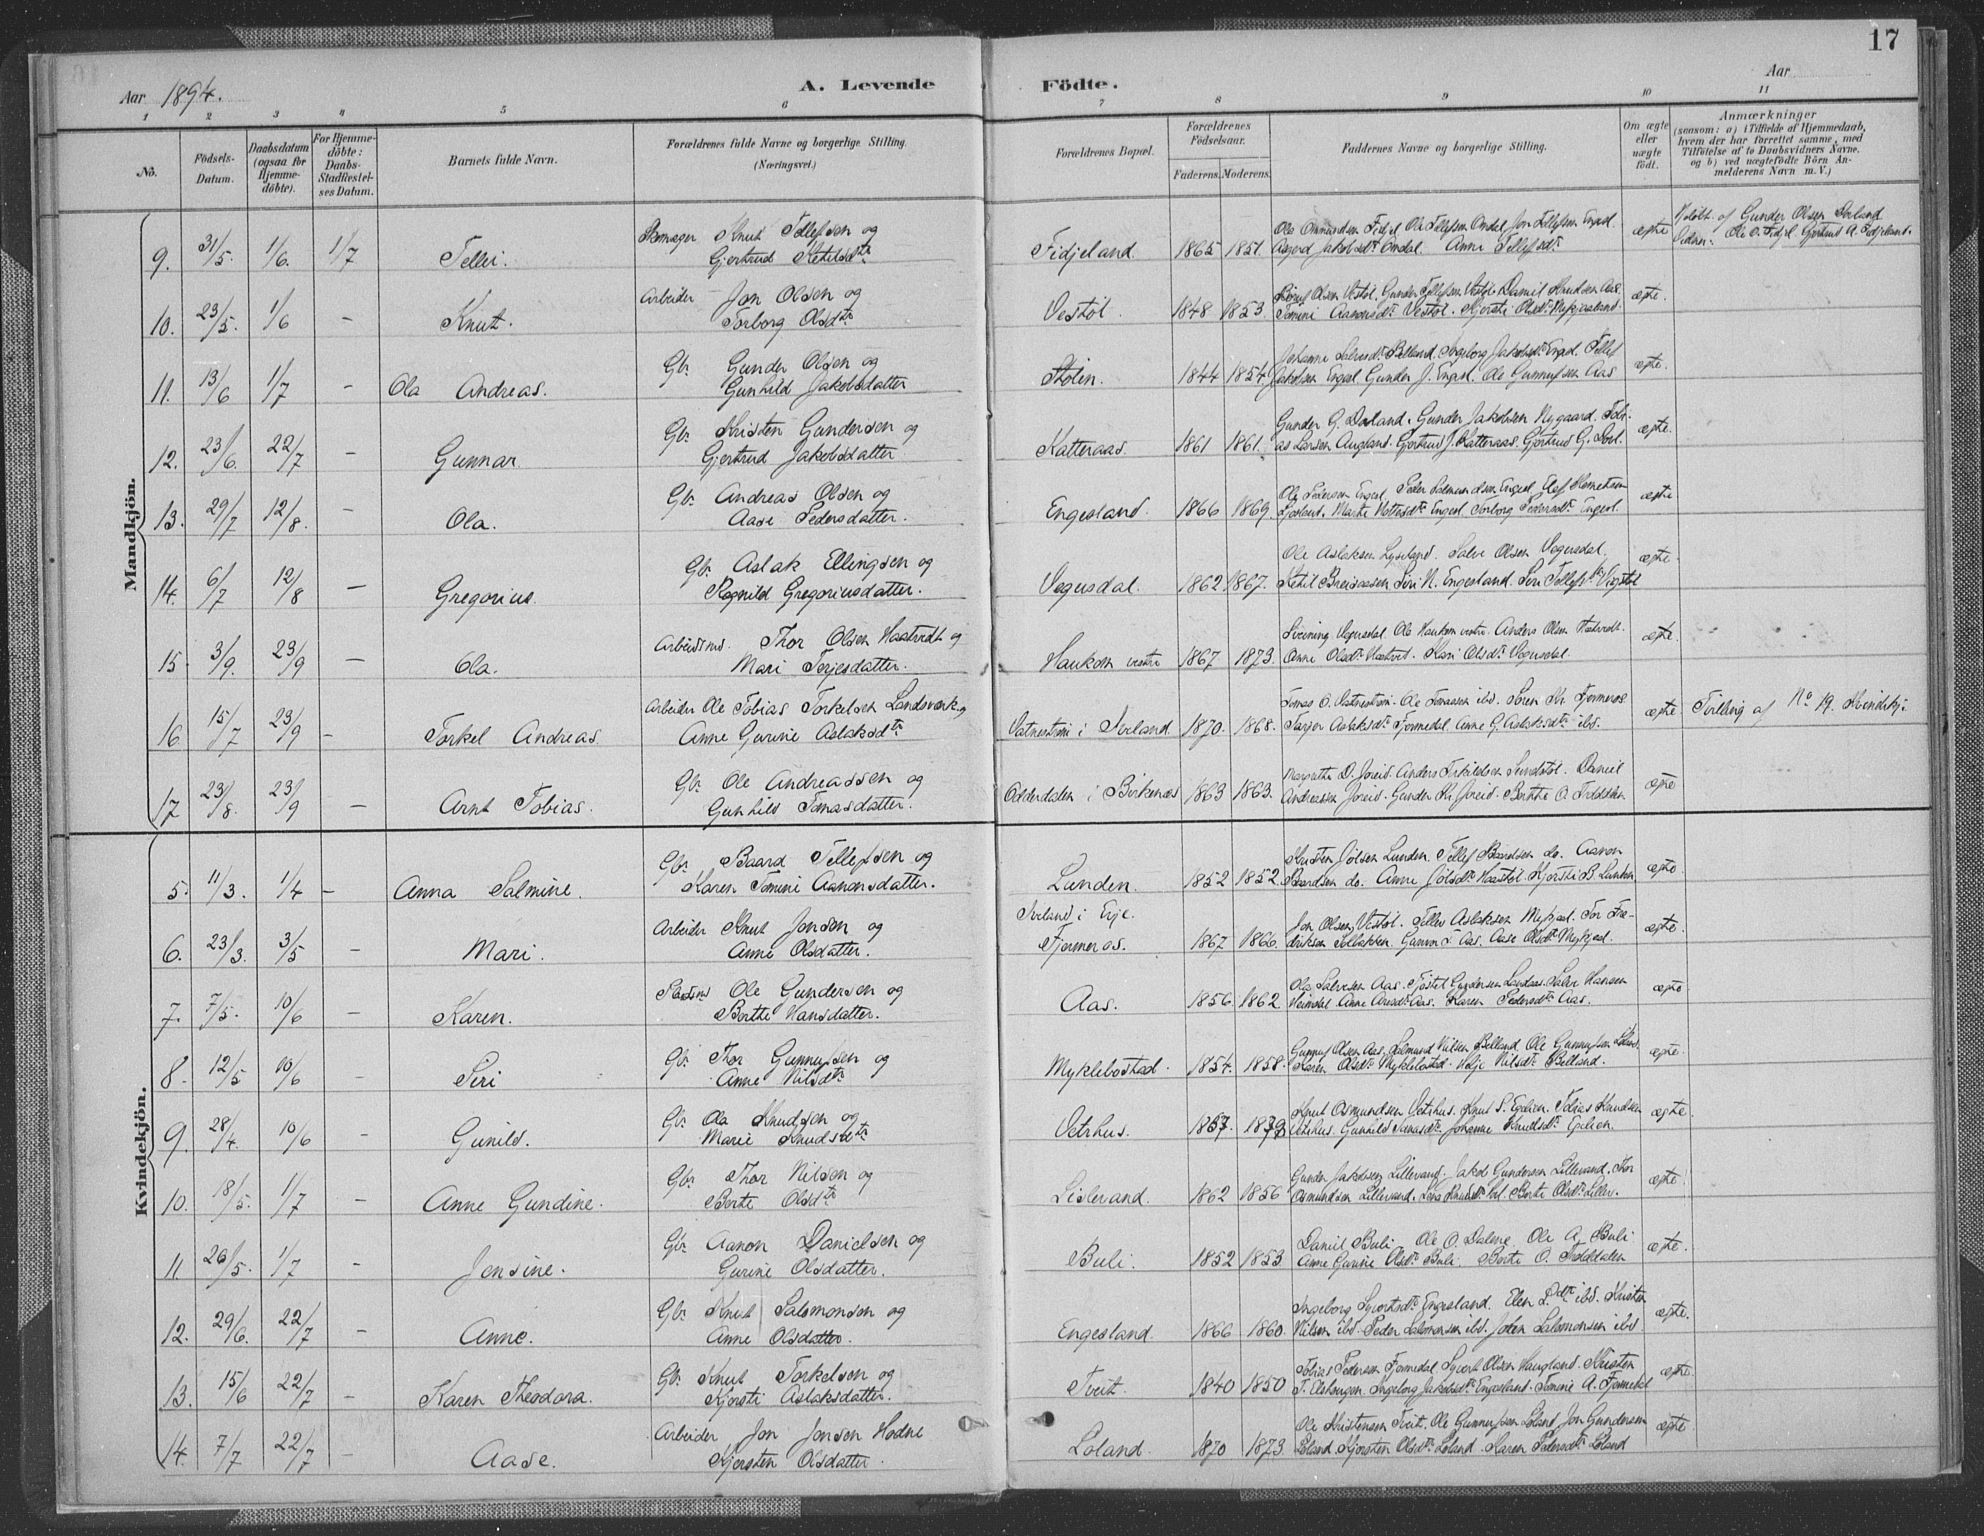 17
Aar 1894.
A. Levende Födte.
Aar
1 2 3 4 5 6 7 8 9 10 11
No.
Födsels-Datum.
Daabsdatum (ogsaa for Hjemmedöbte).
For Hjemmedöbte: Daabs-Stadfæstelses Datum.
Barnets fulde Navn.
Forældrenes fulde Navne og borgerlige Stilling.
(Næringsvei.)
Forældrenes Bopæl.
Forældrenes Födselsaar.
Faderens. Moderens.
Faddernes Navne og borgerlige Stilling.
Om ægte eller uægte födt.
Anmærkninger
(saasom: a) i Tilfælde af Hjemmedaab, hvem der har forrettet samme, med Tilföielse af to Daabsvidners Navne. og b) ved uægtefödte Börn Anmelderens Navn m. V.)
Mandkjön.
9. 31/5 1/6. 1/7 Tellei. Knut Tellefsen og
Gjertrud Ketilsdtr Fidjeland. 1865 1851. Ole Omundsen Fidjel Ole Tellefsen Omdal Jon Tellefsen Engesl.
Aasjerd Jakobsdtr Omdal. Anne Tellefsdtr ægte Hjdöbt af Gunder Olsen Dorland
Vidner: Ole O. Fidjel Gjertrud A. Fidjeland.
10. 23/5. 1/6 - Knut. Arbeider Jon Olsen og
Torborg Olsdtr Vestöl. 1848 1853. Olsen Vestöl. Gunder Tellefsen Vestöl. Daniel Knudsen Aas.
Tomine Aanonsdtr Vestöl. Kjersti Olsdtr ægte.
11. 13/6 1/7 - Ola Andreas. Gbr. Gunder Olsen og
Gunhild Jakobsdatter Stölen. 1844 1854. Johanne Salvesdtr Belland. Ingeborg Jakobsdtr Engesl. Tellef
Jakobsen Engesl. Gunder J. Engesl. Ole Gunnufsen Aas ægte.
12. 23/6. 22/7 - Gunnar. Gbr. Kristen Gundersen og
Gjertrud Jakobsdatter Katteraas. 1861 1861. Gunder G. Dorland. Gunder Jakobsen Nygaard. Tobi-
as Larsen Augland. Gjertrud J. Katteraas. Gjertrud G. Dorl. ægte.
13. 29/7 12/8. - Ola. Gbr. Andreas Olsen og
Aase Pedersdatter. Engesland. 1866 1869. Ole Pedersen Engesl. Peder Salmundsen Engesl.
Marte Engesl Torborg Pedersdtr Engesl. ægte
14. 6/7 12/8 - Gregorius. Gbr. Aslak Ellingsen og
Ragnild Gregoriusdatter. Vegusdal. 1862 1867. Ole Aslaksen Lyseland. Salve Olsen Vegusdal.
Ketil Siri N. Engesland Siri Tellefsdtr ægte.
15. 3/9. 23/9 - Ola. Arbeidsmd. Thor Olsen Haatvedt og
Mari Terjesdatter. Haukom vestre 1867 1873. Vegusdal. Ole Haukom vestre. Anders Olsen Haatvedt.
Anne Olsdtr Haatvet. Kari Olsdtr Vegusdal. ægte.
16. 15/7 23/9 - Torkel Andreas. Arbeider Ole Tobias Torkelsen Landsverk og
Anne Gurine Aslaksdtr Vatnestrøm i Iveland 1870. 1868. Tomas O. Vatnestrøm. Ole Tomasen ibd. Søren Kr. Fjermeros
Aslaksdtr Fjermedal Anne G. Aslaksdtr ibd. ægte Tvilling af No 19. Kvindekj.
17 23/8. 23/9 - Arnt Tobias. Gbr. Ole Andreassen og
Gunhild Tomasdatter. Odderdalen i Birkenæs 1863 1863. Margrethe D. Joreid. Anders Terkildsen Sundstöl. Daniel
Andreasen Joreid. Gunder Kr. Joreid. Berthe O. ægte
Kvindekjön.
5. 11/3. 1/4 - Anna Salmine. Gbr. Baard Tellefsen og
Karen Tomine Aanonsdatter. Lunden. 1852 1852. Kristen Jölsen Lunden. Tellef Baardsen do. Aanon
Baardsen do. Anne Jölsdtr Haastöl Kjersti B. Lunden ægte
6. 23/3. 3/5 - Mari. Arbeider Knut Jonsen og
Anne Olsdatter. Iveland i Evje.
Fjermeros. 1867 1866. Jon Olsen Vestöl. Tellev Aslaksen Mykjaal. Tor Fre-
driksen Solbakken. Gunvor L. Aas. Aase Olsdtr Mykjaal. ægte.
7. 7/5. 10/6 - Karen. Ole Gundersen og
Berthe Hansdatter. Aas. 1856. 1862. Ola Salvesen Aas. Gundersen Salve Hansen
Anne Aas. Karen Pedersdtr Aas. ægte
8. 12/5 10/6 - Siri Gbr. Thor Gunnufsen og
Anne Nilsdtr Myklebostad. 1854. 1858. Gunnuf Olsen Aas. Salmund Nilsen Belland. Ole Gunnufsen
Karen Olsdtr Myklebostad. Nilsdtr Belland. ægte.
9. 28/4. 10/6 - Gunild. Gbr. Ola Knudsen og
Marie Knudsdtr Vetrhus. Knut Osmundsen Vetrhus. Knut S. Eplien. Tobias Knudsen
Vetrhus. Gunhild Johanne Knudsdtr Eplien. ægte.
10. 18/5. 1/7 - Anne Gundine. Gbr. Thor Nilsen og
Berthe Olsdtr Lislevand. 1862 1856 Gunder Jakobsen Lillevand. Jakob Gundersen Lillevand. Thor
Osmundsen Lillevand. Berthe Olsdtr Lillev. ægte.
11. 26/5. 1/7 - Jensine. Gbr. Aanon Danielsen og
Gurine Olsdatter. Buli. 1852 1853 Daniel Buli. Ole O. Dalene. Ole A. Buli
Anne Gurine Olsdtr Buli. Berthe O. ægte.
12. 29/6. 22/7 - Anne. Gbr. Knut Salomonsen og
Anne Olsdatter. Engesland. 1866 1860. Ingeborg Engesland. Elen ibd. Kristen
Nilsen ibd. Peder Salomonsen ibd. Salomonsen ibd ægte.
13. 15/6 22/7 - Karen Theodora. Gbr. Knut Torkelsen og
Kjersti Aslaksdatter. Tveit. 1840 1850 Tobias Pedersen Fjermedal Sjvert Olsen Haugland. Kristen
T. Ingeborg Jakobsdtr Engesland. Tomine A. Fjermedal ægte.
14. 7/7 22/7 - Aase. Arbeider Jon Jonsen Hodne
Kjersten Olsdatter. Loland. 1870 1873 Ole Kristensen Tveit. Ole Gunnufsen Loland Jon Gundersen
Loland. Kjersten Olsdtr Loland. Karen Pedersdtr Loland ægte